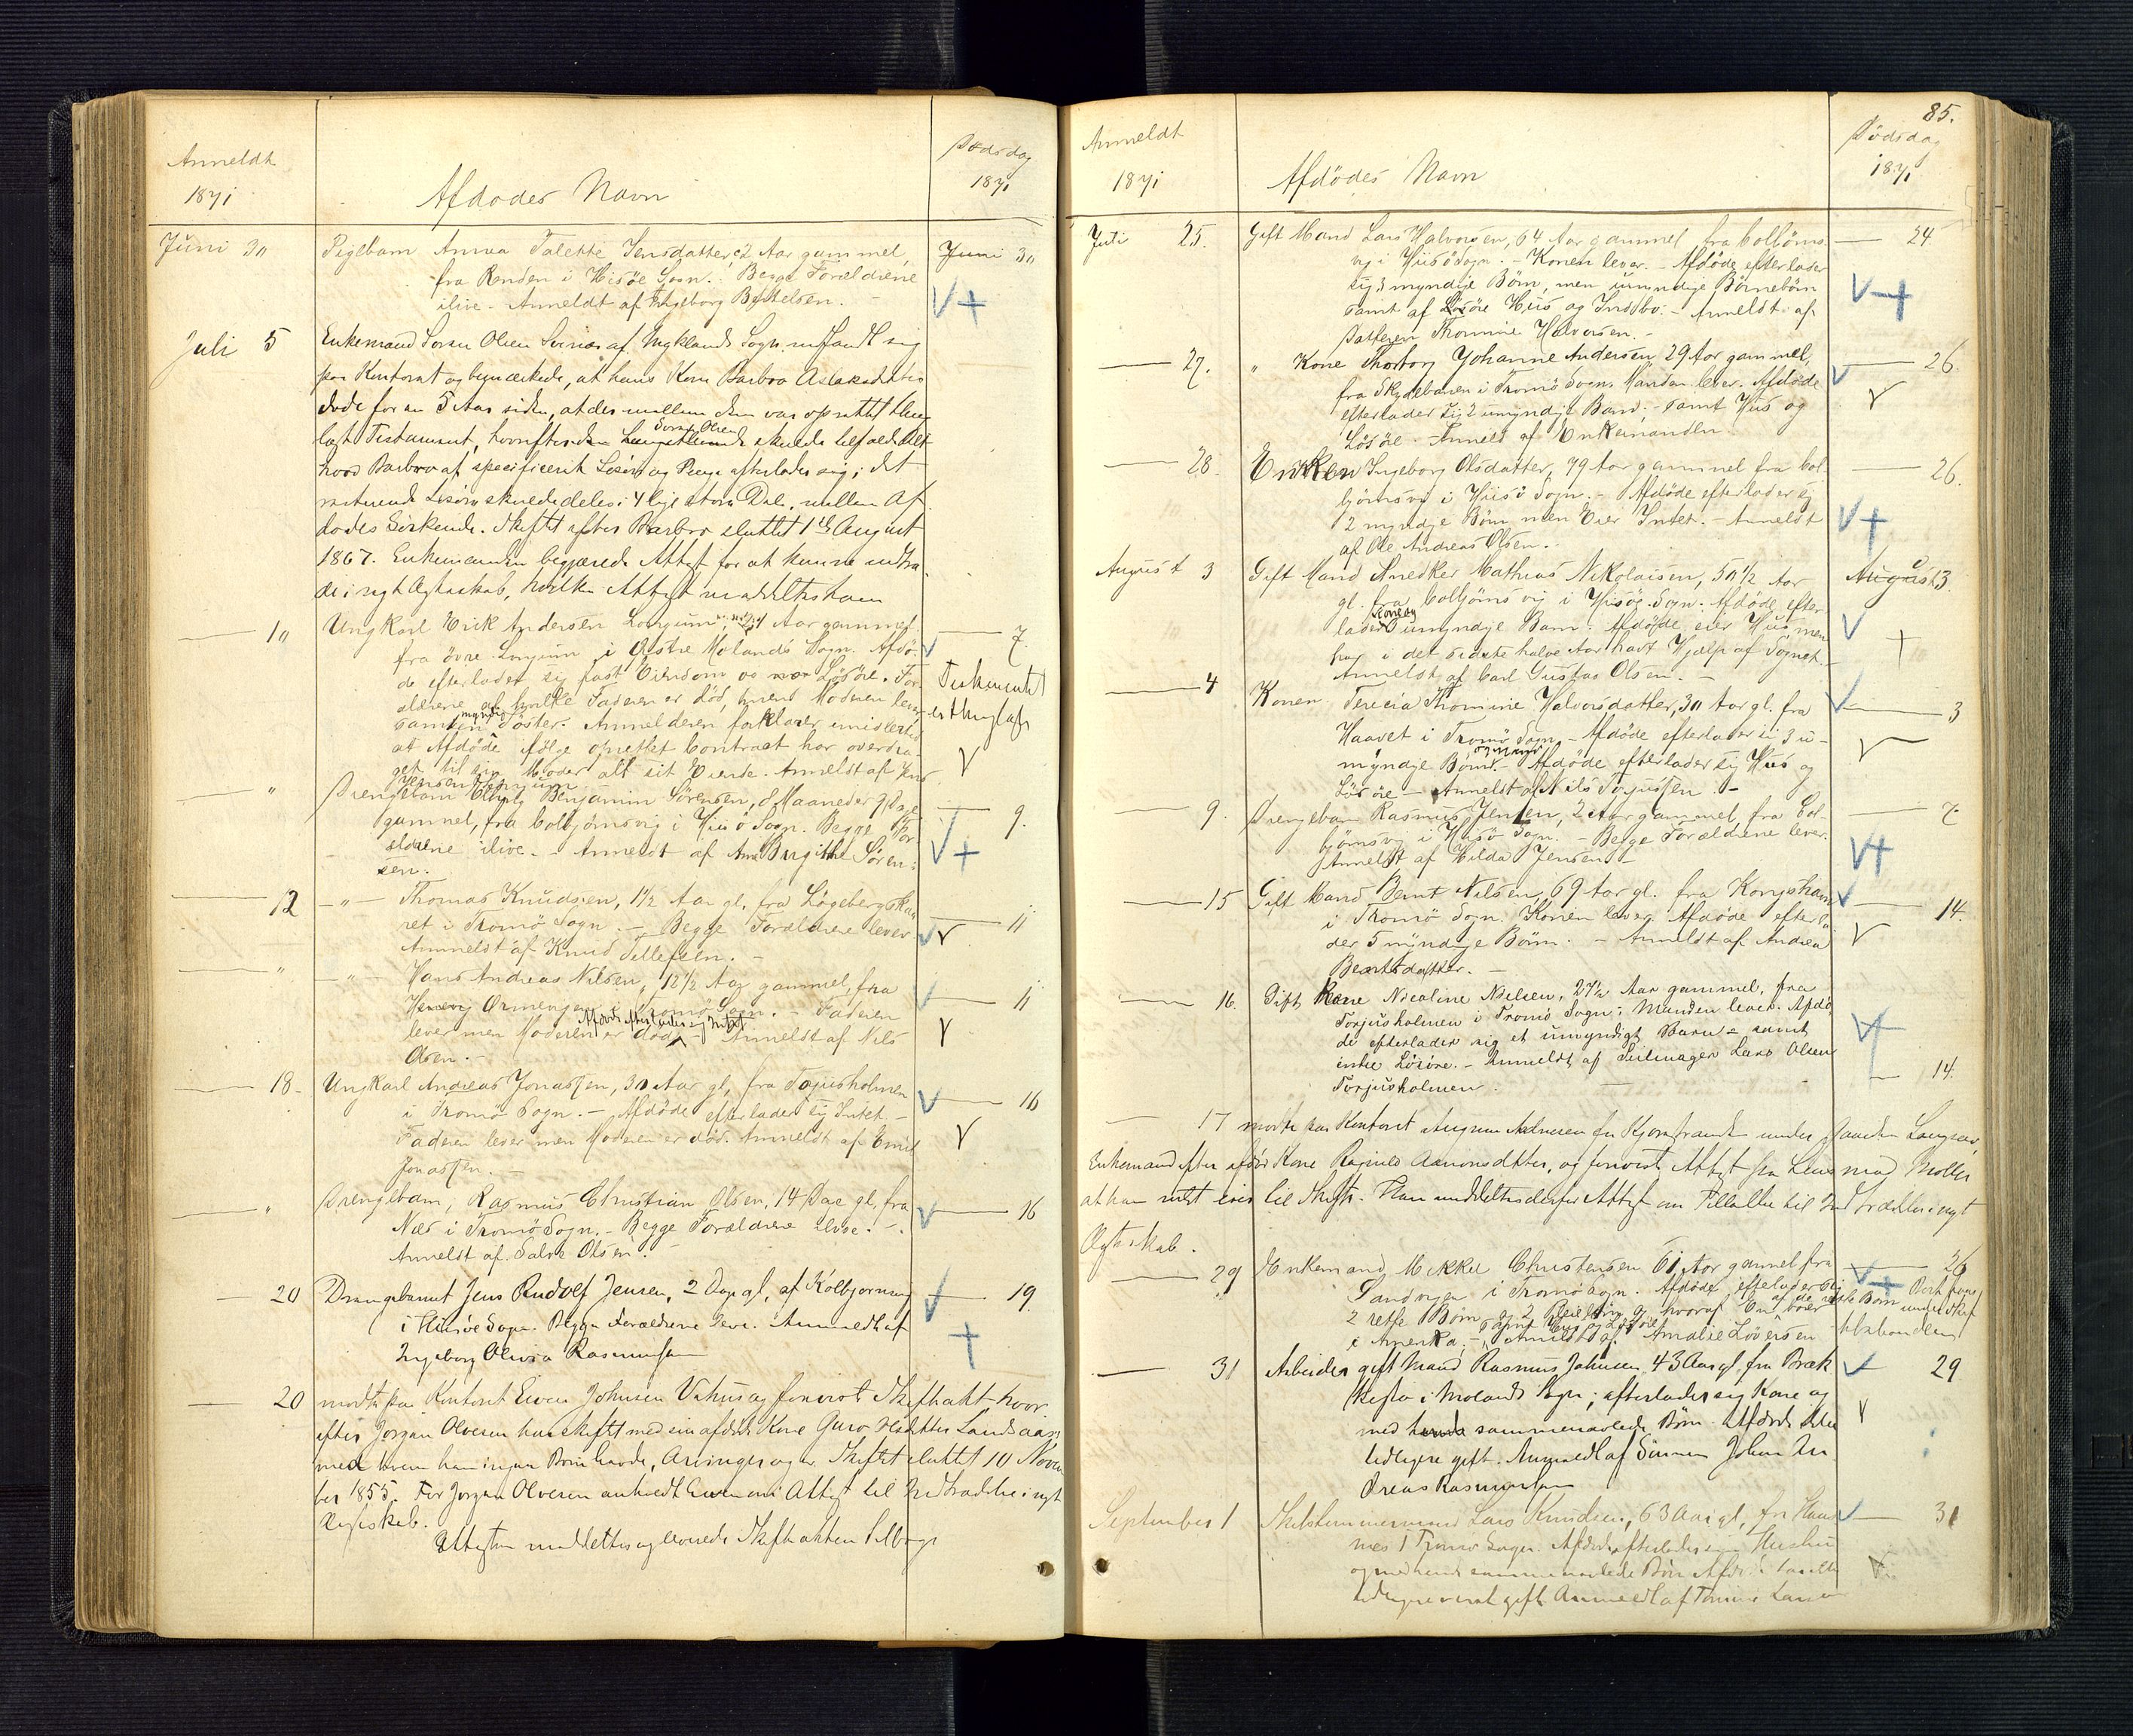 Anmeldt
1871
Afdødes Navn
Dødsdag
1871
Juni 30 Pigebarn Anna Talette Jensdatter, 2 Aar gammel, Juni 30
fra Renden i Hisøe Sogn. Begge Forældrene
ilive. Anmeldt af Ingeborg Bertelsen.
Juli 5 Enkemand Søren Olsen af Øyklands Sogn indfandt sig
paa Kontoret og bemærkede, at hans Kone Barbra Aslaksdatter
døde for en 5 Aar siden, at der mellem dem var oprettet thing
læst Testament, hvorefter Søren Olsen skulde tilfalde Alt
hvad Barbra af specificerit Løsøre og Penge efterlader sig; det
resterende Løsøre skulde deles i 4 lige store Dele, mellem Af
dødes Søskende. Skiftet efter Barbra sluttet 1 August
1867. Enkemanden begjærede Attest for at kunne indtræ
de i nyt Ægteskab, hvilken Attest meddeltes ham
10 Ungkarl Erik Andersen Longum, Aar gammel 7.
fra øvre Longum i Østre Molands Sogn. Afdø-
de efterlader sig fast Eiendom og Løsøre. For
ældrene af hvilke Faderen er død, mens Moderen lever Testamentet
samt en myndig Søster. Anmelderen forklarer imidlertid er thinglæst
at Afdøde ifølge oprettet Contract har overdra
get til sin Moder alt sit Eiende. Anmeldt af Jens
Jensen Longum
" Drengebarn Benjamin Sørensen, 8 Maaneder 9 Dage 9.
gammel, fra Colbjørnsvig i Hisø Sogn. Begge For
ældrene ilive. - Anmeldt af Ane Birgithe Søren-
sen.
12 -"- Thomas Knudsen, 1½ Aar gl. fra Løgebergskaa
ret i Tromø Sogn. - Begge Forældrene lever 11
Anmeldt af Knud Tellefsen. -
" -"- Hans Andreas Nilsen, 12½ Aar gammel, fra
Ormengen i Tromø Sogn. - Faderen 11
lever men Moderen er død. Afdøde efterlader sig Intet Anmeldt af Nils
Olsen. -
18. Ungkarl Andreas Jonassen, 30 Aar gl, fra Tojusholmen
i Tromø Sogn. - Afdøde efterlader sig Intet. - 16
Faderen lever men Moderen er død. Anmeldt af Emil
Jonassen. -
" Drengebarn, Rasmus Christian Olsen, 14 Dage gl, fra 16
Næs i Tromø Sogn. - Begge Forældrene ilive. -
Anmeldt af Salve Olsen. -
20 Drengebarnet Jens Rudolf Jensen, 2 Dage gl, af Kolbjørnsvig 19.
i Hisøe Sogn. Begge Forældrene leve. Anmeldt af
Ingeborg Olivia Rasmussen
20 mødte paa Kontoret Even Johnsen Vehus og foreviste Skifteakt hvor
efter Jørgen Olvesen har skiftet med sin afdøde Kone Guro Landsaas
med hvem han ingen Børn havde, Arvinger og er Skiftet sluttet 10 Novem
ber 1855. For Jørgen Olvesen anholdt Even om Attest til Indtrædelse i nyt
Ægteskab.
Attesten meddeltes og leverede Skifteakten tilbage
85.
Anmeldt
1871
Afdødes Navn
Dødsdag
1871
Juli 25. Gift Mand Lars Halvorsen, 64 Aar gammel fra Colbjørns- 24
vig i Hisø Sogn. - Konen lever. - Afdøde efterlader
sig 3 myndige Børn, men umyndige Børnebørn
samt af Løsøre Hus og Indbo. - Anmeldt af
Datteren Thomine Halvorsen. -
27. " Kone Thorborg Johanne Andersen 29 Aar gammel, 26.
fra Skydebanen i Tromø Sogn. Manden lever. Afdøde
efterlader sig 2 umyndige Børn. - samt Hus og
Løsøre. Anmeldt af Enkemanden
28. Enken Ingeborg Olsdatter, 79 Aar gammel fra Col 26.
bjørnsvig i Hisø Sogn. - Afdøde efterlader sig
2 myndige Børn men Eier Intet. - Anmeldt
af Ole Andreas Olsen. -
August 3 Gift Mand Snedker Mathias Nikolaisen, 50½ Aar August 3.
gl. fra Colbjørnsvig i Hisøe Sogn. Afdøde efter
lader Kone og umyndige Barn. Afdøde eier Hus men
har i det sidste halve Aar havt Hjælp af Sognet. -
Anmeldt af Carl Gustav Olsen. -
4 Konen Terecia Thomine Halvorsdatter, 30 Aar gl. fra 3
Haavet i Tromø Sogn. - Afdøde efterlader sig 3 u-
myndige Børn. - Afdøde efterlader sig Hus og
Løsøre - Anmeldt af Nils Torjussen. -
9. Drengebarn Rasmus Jensen, 2 Aar gammel, fra Col- 7.
bjørnsvig i Hisø Sogn. - Begge Forældrene lever.
Anmeldt af Hilda Jensen -
15 Gift Mand Bernt Nilsen, 69 Aar gl. fra Kongshavn 14.
i Tromø Sogn. Konen lever. Afdøde efterla
der 5 myndige Børn. - Anmeldt af Andrea
Berntsdatter. -
16. Gift Kone Nicoline Nielsen, 27½ Aar gammel, fra
Torjusholmen i Tromø Sogn; Manden lever. Afdø
de efterlader sig et umyndigt Barn - samt
endre Løsøre. - Anmeldt af Seilmager Lars Olsen
Torjusholmen. 14.
17 mødte paa Kontoret fra Kjorstranden under
Enkemand efter afdød Kone Ragnild Aanonsdatter, og foreviste Attest fra Lensmand Møller
at han intet eier til Skifte. Han meddeltes derfor Attest om Tilladelse til Indtrædelse i nyt
Ægteskab.
29 Enkemand Mikkel Christensen 61 Aar gammel fra 26
Sandvigen i Tromø Sogn. Afdøde efterlader sig
2 rette Børn og 2 hvoraf En boer
i Amerika. - samt Hus og Løsøre Anmeldt af Amalie Løversen
31 Arbeider gift Mand Rasmus Johnsen 43 Aar gl, fra Bræk 29
kestø i Molands Sogn; efterlader sig Kone og
med hende sammenavlede Børn. Afdøde ikke
tidligere gift. Anmeldt af Sønnen Johan An
dreas Rasmussen
September 1 Skibstømmermand Lars Knudsen, 63 Aar gl, fra 31
i Tromø Sogn. Afdøde efterlader sig Hustru
og med hende sammenavlede Børn
tidligere været gift. Anmeldt af Tomine Larsen